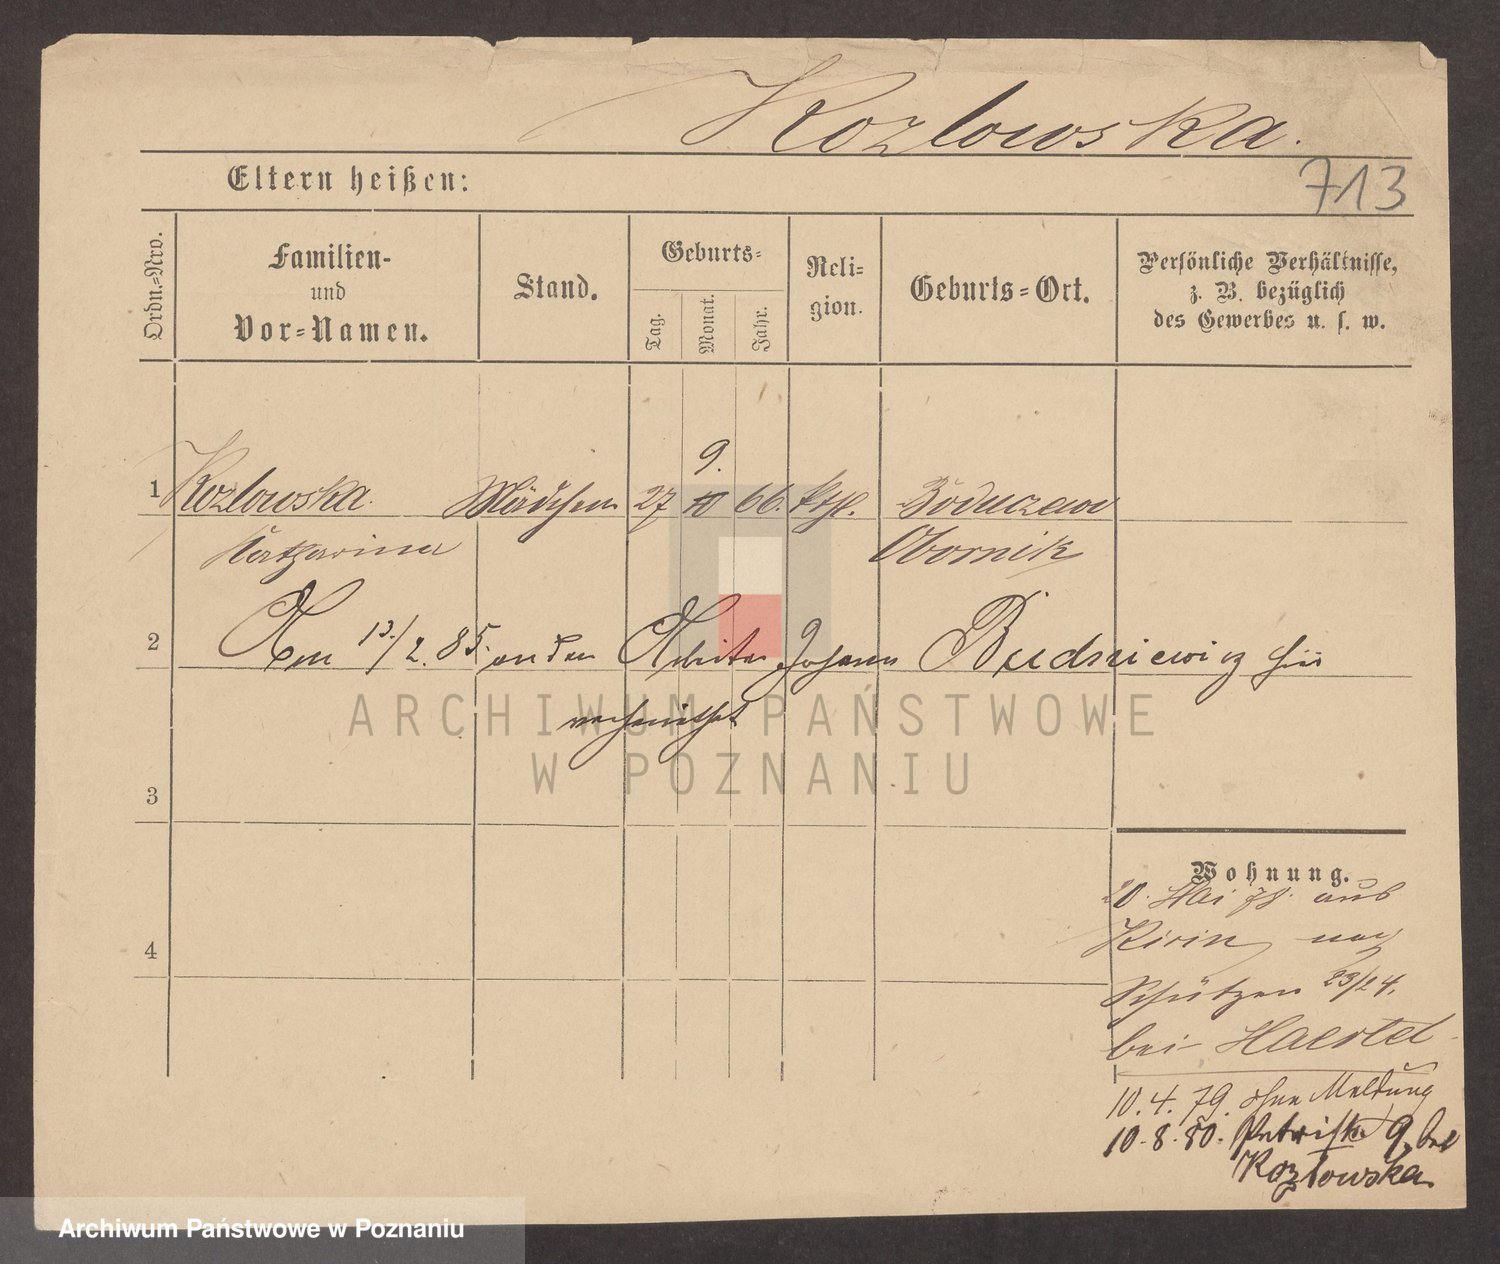 Kozlowska.
Eltern heißen:
713
Ordn.-Nro.
Familien-
und
Vor-Namen.
Stand.
Geburts-
Tag.
Monat.
Jahr.
Reli-
gion.
Geburts-Ort.
Persönliche Verhältnisse,
z. B. bezüglich
des Gewerbes u. s. w.
9.
1 Kozlowska. Mädchen 27 10 66. kthl.
Katharina Obornik
2 Am 13./2. 85. an den Arbeiter Johann Budniewicz hier
verheirathet
ARCHIWUM PAŃSTWOWE
W POZNANIU
3
Wohnung.
20. Mai 78. aus
nach
4
Schützen 23/24.
bei Haertel
10.4.79. ohne Meldung
10.8.80. 9, bei
Kozlowska
Archiwum Państwowe w Poznaniu